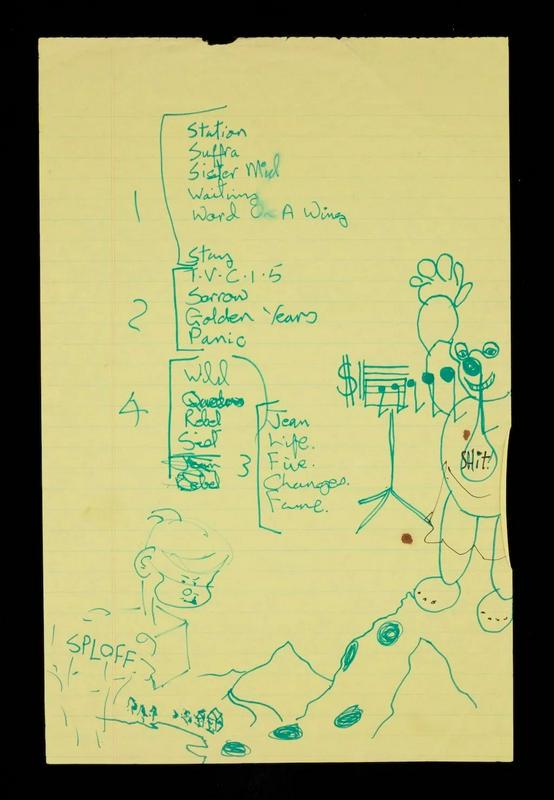 1
Station
Suffra
Sister Mid
Waiting
Word On A Wing
Stay
2
T.V.C.1.5
Sorrow
Golden Years
Panic
4
Wild
Queens
Rebel
Jean
Rebel
3
Jean
Life.
Five.
Changes.
Fame.
$
SHit!
SPLOFF